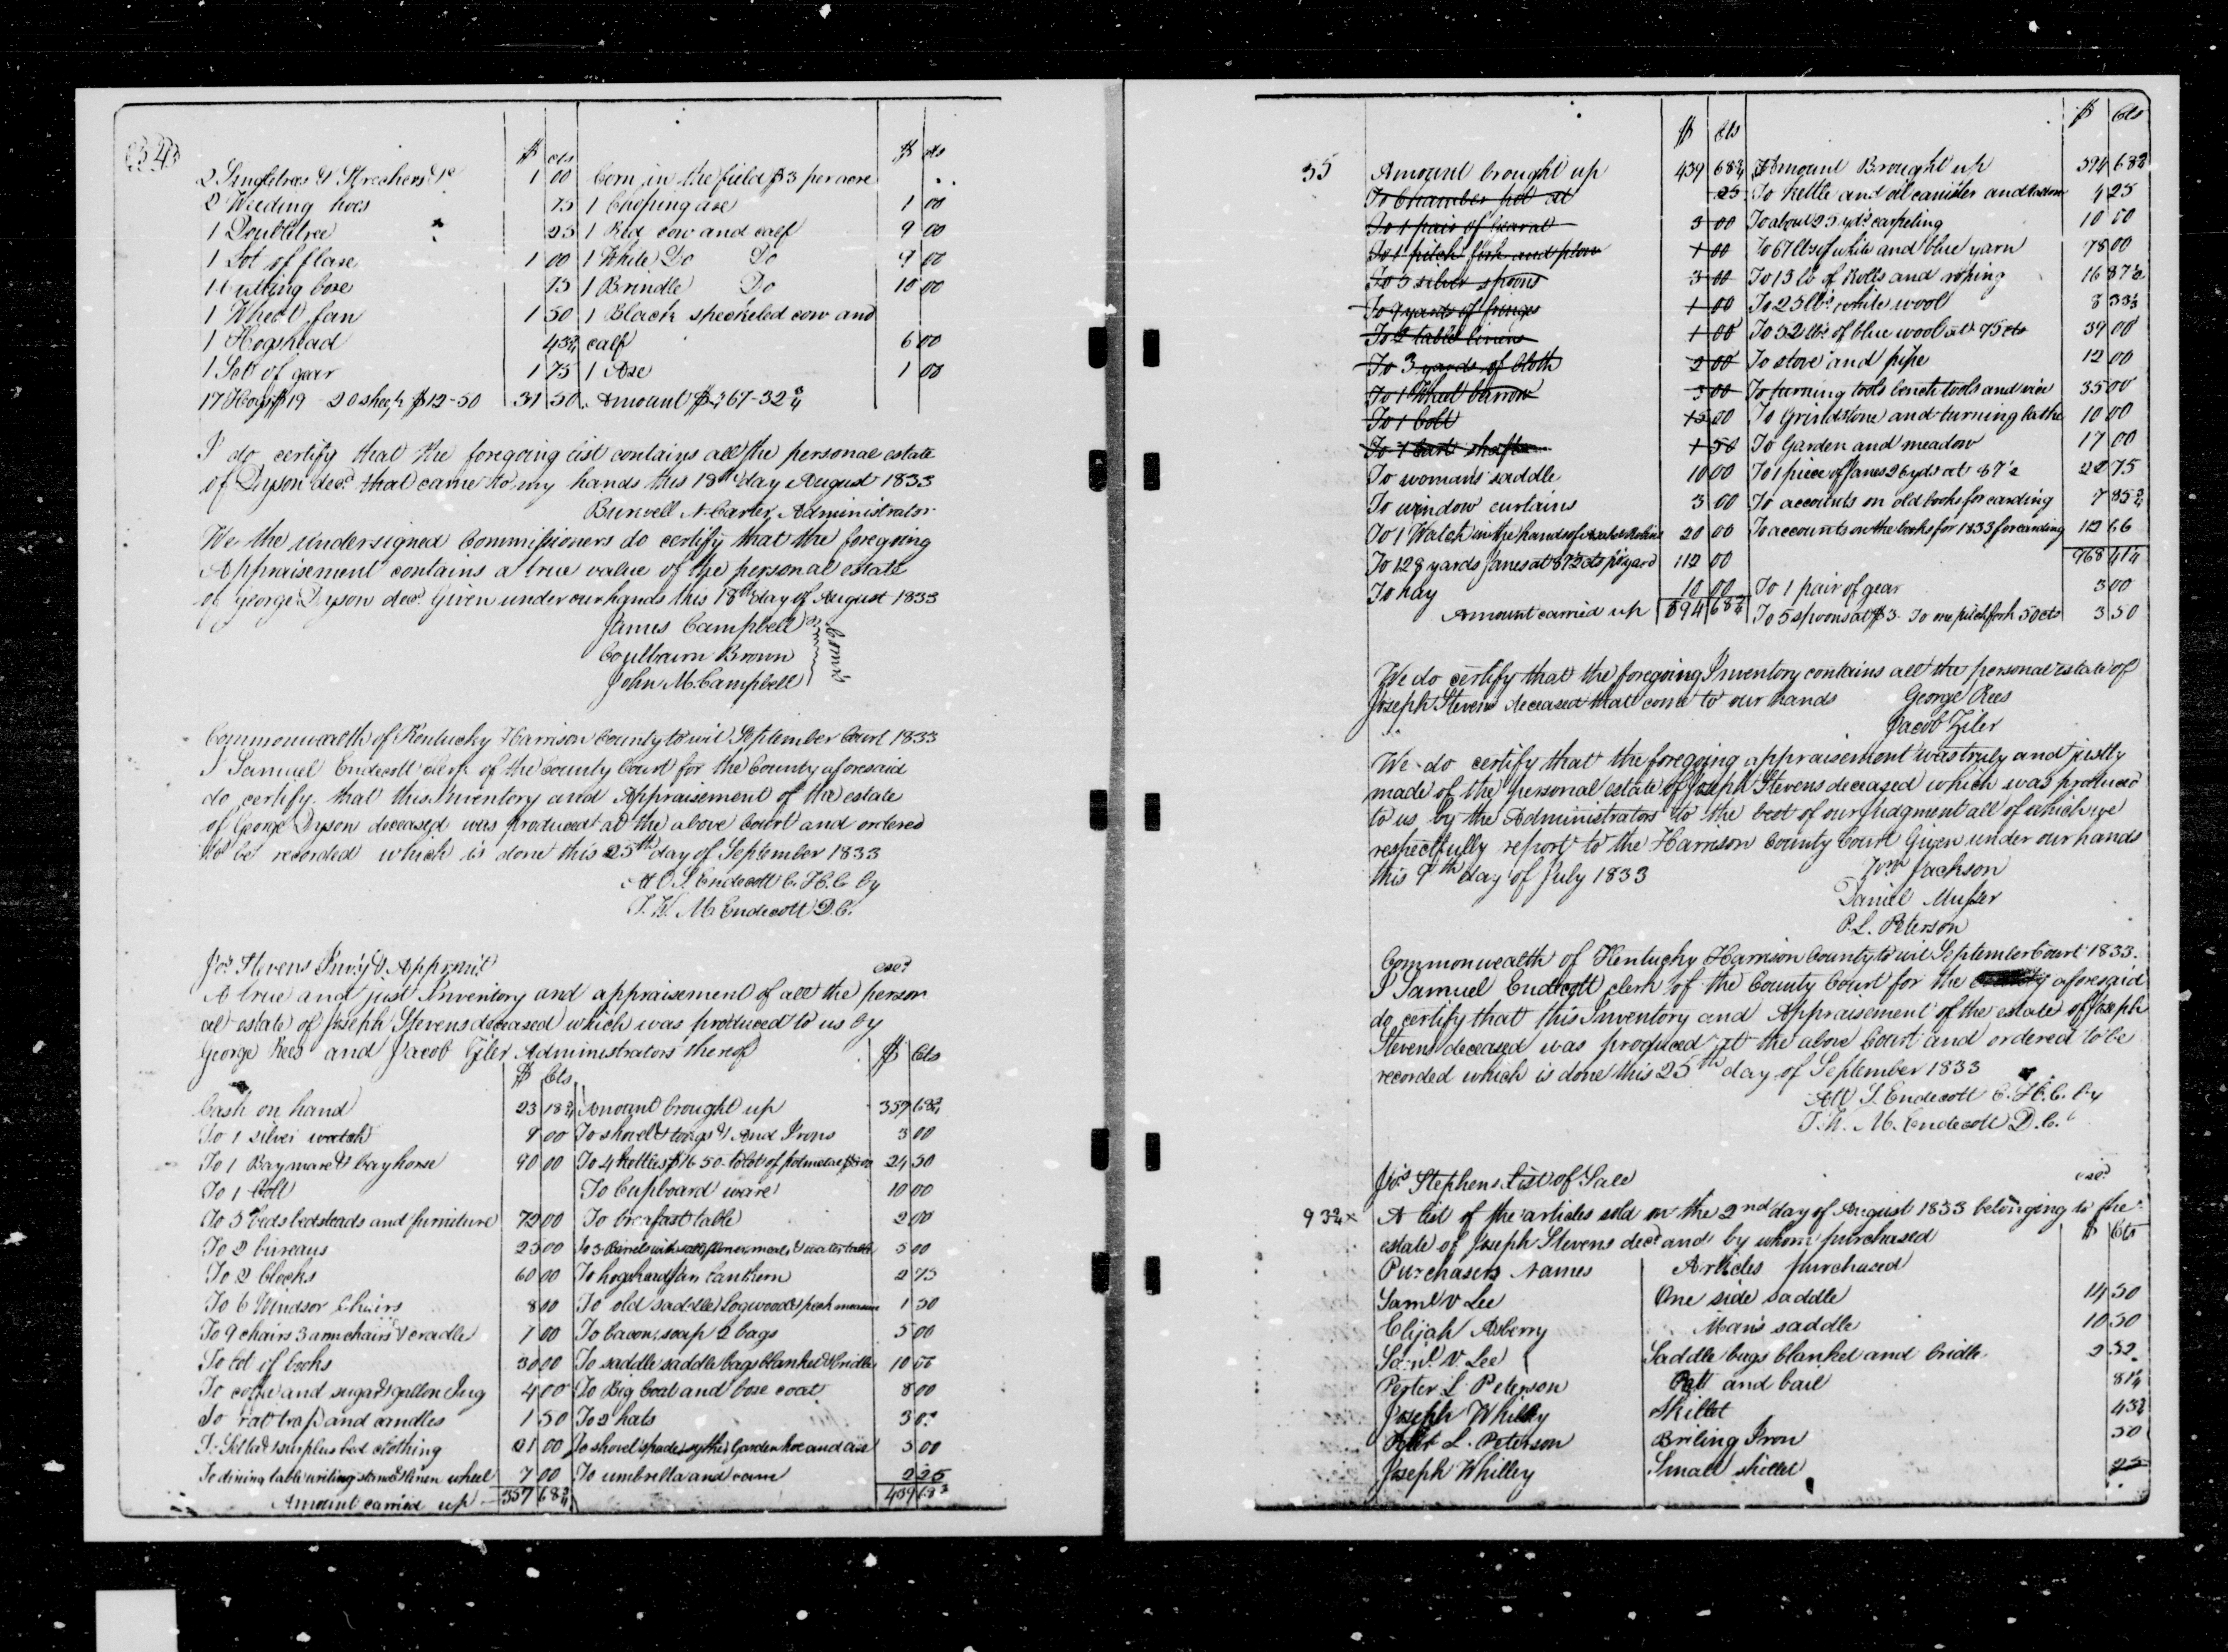 34
$ cts $ cts
2 Singletrees & Strechers &c 1 00 Corn in the field $3 per acre
2 Weeding hoes 75 1 Choping axe 1 00
1 Doubletree 25 1 Red cow and calf 9 00
1 Lot of flaxe 1 00 1 White Do Do 9 00
1 Cutting boxe 75 1 Brindle Do 10 00
1 Wheat fan 1 50 1 Black speckeled cow and
1 Hogshead 43¾ calf 6 00
1 Set of gear 1 75 1 Axe 1 00
17 Hogs $19 - 20 sheep $12-50 31 50 Amount $367-32¾
I do certify that the foregoing list contains all the personal estate
of Dyson decd. that came to my hands this 18th day August 1833
Burwell N Carter, Administrator
We the undersigned Commissioners do certify that the foregoing
Appraisement contains a true value of the personal estate
of George Dyson decd. Given under our hands this 18th day of August 1833
James Campbell
Coulbourn Brown
John M. Campbell
Comrs
Commonwealth of Kentucky Harrison County to wit September Court 1833
I Samuel Endecott clerk of the County Court for the County aforesaid
do certify that this Inventory and Appraisement of the estate
of George Dyson deceased was produced at the above Court and ordered
to be recorded which is done this 25th day of September 1833
Att S. Endecott C.H.C. by
T. W. M. Endecott D.C.
Jos Stevens Invy & Appraist exd
A true and just Inventory and appraisement of all the person
al estate of Joseph Stevens deceased which was produced to us by
George Rees and Jacob Ziler Administrators thereof $ Cts
$ Cts
Cash on hand 23 18¾ Amount brought up 357 68¾
To 1 silver watch 9 00 To shovel & tongs & And Irons 3 00
To 1 Bay mare & bay horse 90 00 To 4 kettles $16 50 - to lot of potmetal $8 00 24 50
To 1 Colt To Cupboard ware 10 00
To 5 beds bedsteads and furniture 72 00 To breafast table 2 00
To 2 bureaus 25 00 To 3 Barrels with salt, flower, meal, & water table 5 00
To 2 clocks 60 00 To hogshead fan Lanthern 2 75
To 6 Windsor Chairs 8 00 To old saddle Logwood & peck measure 1 50
To 9 chairs 3 armchairs & cradle 7 00 To bacon, soap 2 bags 5 00
To lot of books 30 00 To saddle saddle bags blanket & bridle 10 00
To coffee and sugar & gallon Jug 4 00 To Big Coat and close coat 8 00
To rat trap and candles 1 50 To 2 hats 3 00
To surplus bed clothing 21 00 To shovel spade, sythe, Garden hoe and axe 5 00
To dining table writing stand & linen wheel 7 00 To umbrella and cane 2 25
Amount carried up 357 68¾ 439 68¾
$ Cts $ Cts
55 Amount brought up 439 68¾ Amount Brought up 594 68¾
To Chamber pot at 25 To Kettle and oil canister and 4 25
To 1 pair of 3 00 To about 25 yds carpeting 10 00
To 1 pitch fork and plow 1 00 To 67 lbs of white and blue yarn 78 00
To 5 silver spoons 3 00 To 13 lb of Rolls and roping 16 87½
To 9 yards of fringe 1 00 To 25 lbs white wool 8 33⅓
To 2 table linens 1 00 To 52 lbs of blue wool at 75 cts 39 00
To 3 yards of Cloth 2 00 To stove and pipe 12 00
To 1 Wheel barrow 3 00 To turning tools bench tools and vice 35 00
To 1 Colt 15 00 To Grindstone and turning lathe 10 00
To 1 Cart shafts 1 50 To Garden and meadow 17 00
To womans saddle 10 00 To 1 piece of Janes 26 yds at 87½ 22 75
To window curtains 3 00 To accounts on old books for carding 7 85¾
To 1 Watch in the hands of 20 00 To accounts on the books for 1833 for carding 112 66
To 128 yards Janes at 87½ cts pr yard 112 00 968 41¼
To hay 10 00 To 1 pair of gear 3 00
Amount carried up 594 68¾ To 5 spoons at $3 - To one pitchfork 50 cts 3 50
We do certify that the foregoing Inventory contains all the personal estate of
Joseph Stevens deceased that come to our hands George Rees
Jacob Ziler
We do certify that the foregoing appraisement was truly and justly
made of the personal estate of Joseph Stevens deceased which was produced
to us by the Administrators to the best of our Judgment all of which we
respectfully report to the Harrison County Court Given under our hands
this 9th day of July 1833 Wm Jackson
Daniel Musser
P. L. Peterson
Commonwealth of Kentucky Harrison County to wit September Court 1833.
I Samuel Endecott clerk of the County Court for the County aforesaid
do certify that this Inventory and Appraisement of the estate of Joseph
Stevens deceased was produced at the above Court and ordered to be
recorded which is done this 25th day of September 1833
Att S. Endecott C.H.C. by
T. W. M. Endecott D.C.
Jos Stephens List of Sale exd
93¾ x A list of the articles sold on the 2nd day of August 1833 belonging to the
estate of Joseph Stevens decd and by whom purchased $ Cts
Purchasers Names Articles purchased
Saml V Lee One side saddle 14 50
Elijah Asberry Man's saddle 10 50
Saml V. Lee Saddle bags blanket and bridle 2 52
Pester L. Peterson Pott and bail 81¼
Joseph Whilley Skillet 43¾
Pester L. Peterson Briling Iron 50
Joseph Whilley Small skillet 25